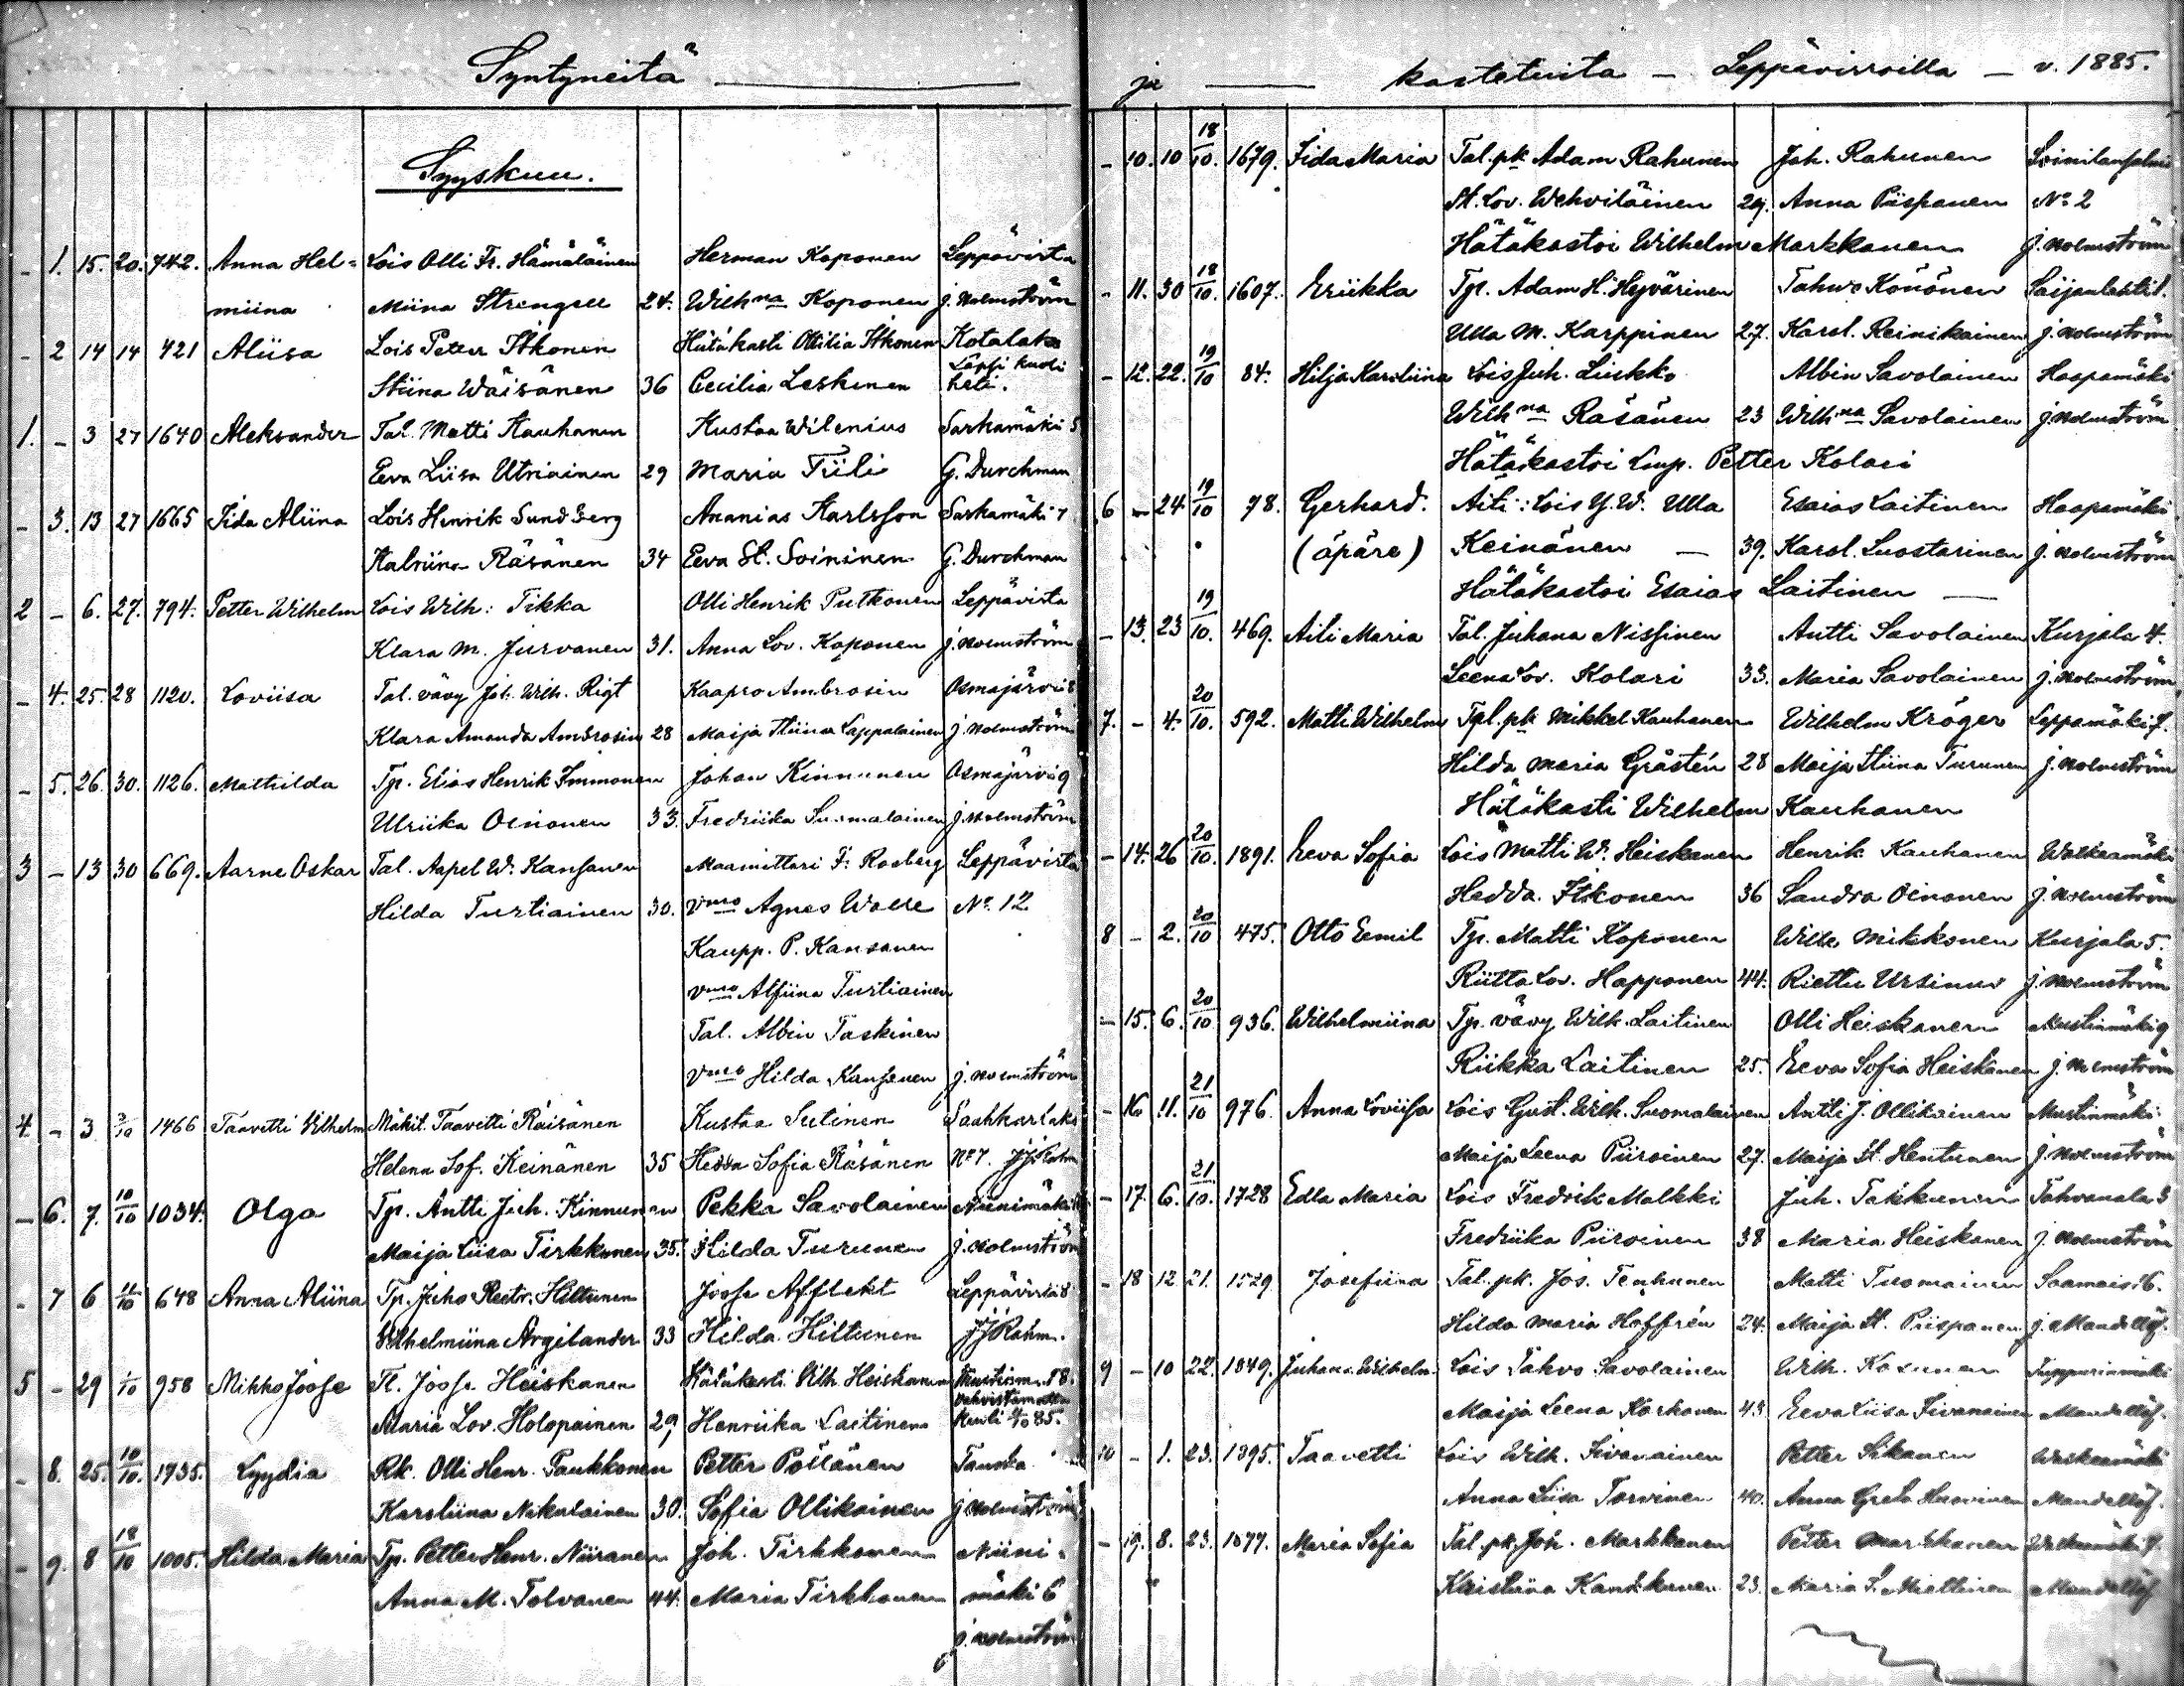 Syntyneitä
Syyskuu.
- 1. 15. 20. 742. Anna Hel= Lois Olli Fr. Hämäläinen Herman Koponen Leppävirta
miina Miina Strengell 24. Wilhna Koponen j. Holmström
- 2 14 14 421 Aliisa Lois Petter Itkonen Hätäkasti Ottilia Itkonen Kotalaks
Stiina Wäisänen 36 Cecilia Leskinen Lapsi kuoli heti.
1. - 3 27 1640 Aleksander Tal. Matti Kauhanen Kustaa Wilenius Sarkamäki 5
Eeva Liisa Utriainen 29 Maria Tiili G. Durchman
- 3. 13 27 1665 Iida Aliina Lois Henrik Sundberg Ananias Karlsson Sarkamäki 7
Katriina Räsänen 34 Eeva St. Soininen G. Durchman
2 - 6. 27. 794. Petter Wilhelm Lois Wilh: Tikka Olli Henrik Putkonen Leppävirta
Klara M. Jurvanen 31. Anna Lov. Koponen j. Holmström
- 4. 25. 28 1120. Loviisa Tal. vävy Joh. Wilh. Rigt Kaapro Ambrosin Osmajärvi 8
Klara Amanda Ambrosin 28 Maija Stiina Lappalainen j. Holmström
- 5. 26. 30. 1126. Mathilda Tp. Elias Henrik Immonen Johan Kinnunen Osmajärvi 9
Ulriika Oinonen 33. Fredriika Suomalainen j. Holmström
3 - 13 30 669. Aarne Oskar Tal. Aapel W. Kansanen Maamittari F. Rosberg Leppävirta
Hilda Turtiainen 30. Vmo Agnes Walle No. 12
Kaupp. P. Kansanen
Vmo Alfiina Turtiainen
Tal. Albin Taskinen
Vmo Hilda Kansanen j. Holmström
4. - 3 3/10 1466 Taavetti Vilhelm Mäkit. Taavetti Räisänen Kustaa Sutinen Saahkarlaks
Helena Sof. Keinänen 35 Hedda Sofia Räsänen No 7.
- 6. 7. 10/10 1034. Olga Tp. Antti Juh. Kinnunen Pekka Savolainen Niinimäki
Maija Liisa Tirkkonen 35. Hilda Turunen j. Holmström
- 7 6 11/10 648 Anna Aliina Tp. Juho Hiltunen Joose Afflekt Leppävirta 8
Vilhelmiina Argilander 33 Hilda Hiltunen
5 - 29 1/10 958 Mikko Joose Tl. Joose Heiskanen Hätäkasti Vilh Heiskanen Mustinm. 18.
Maria Lov. Holopainen 29, Henriika Laitinen Vahvistamatta kuoli 85.
- 8. 25. 10/10. 1935. Lyydia Rk. Olli Henr. Paukkonen Petter Pöllänen
Karoliina Nikulainen 30. Sofia Ollikainen j. Holmström
- 9. 8 18/10 1005. Hilda Maria Tp. Petter Henr. Niiranen Joh. Tirkkonen Niini=
Anna M. Tolvanen 44. Maria Tirkkonen mäki 6
j. Holmström
ja kastetuita - Leppävirroilla - v. 1885.
- 10. 10 18/10. 1679. Iida Maria Tal. pk Adam Rahunen Joh. Rahunen Soinilansalmi
St. Lov. Wehviläinen 29. Anna Piispanen No 2
Hätäkastoi Wilhelm Markkanen j. Holmström
- 11. 30 18/10. 1607. Eriikka Tp. Adam H. Hyvärinen Tahvo Könönen Saijanlahti 1.
Ulla M. Karppinen 27. Karol. Reinikainen j. Holmström
- 12. 22. 19/10 84. Hilja Karoliina Lois Juh. Liukko Albin Savolainen Haapamäki
Wilhna Räsänen 23 Wilhna Savolainen j. Holmström
Hätäkastoi Lmp. Petter Kolari
6 - 24 19/10 78. Gerhard. Äiti: Lois Y. W. Ulla Esaias Laitinen Haapamäki
(äpäre) Keinänen - 39. Karol. Luostarinen j. Holmström
Hätäkastoi Esaias Laitinen
- 13. 23 19/10. 469. Aili Maria Tal. Juhana Nissinen Antti Savolainen Kurjala 4.
Leena Lov. Kolari 33. Maria Savolainen j. Holmström
7. - 4. 20/10. 592. Matti Wilhelm Tpl. pk Mikkel Kauhanen Wilhelm Kröger Leppämäki 7.
Hilda Maria Gråstén 28 Maija Stiina Turunen j. Holmström
Hätäkasti Wilhelm Kauhanen
- 14. 26 20/10. 1891. Eeva Sofia Lois Matti W. Heiskanen Henrik Kauhanen Walkeamäki
Hedda Itkonen 36 Sandra Oinonen j. Holmström
8 - 2. 20/10 475. Otto Eemil Tp. Matti Koponen Wille Mikkonen Kurjala 5.
Riitta Lov. Happonen 44. Riettu Ursinus j. Holmström
- 15. 6. 20/10 936. Wilhelmiina Tp. vävy Wilh. Laitinen Olli Heiskanen Mustinmäki 9
Riikka Laitinen 25. Eeva Sofia Heiskanen j. Holmström
- 16 11. 21/10 976. Anna Loviisa Lois Gust. Wilh. Suomalainen Antti J. Ollikainen Mustinmäki
Maija Leena Piiroinen 27. Maija St. Hentunen j. Holmström
- 17. 6. 21/10. 1728 Edla Maria Lois Fredrik Malkki Juh. Takkunen Tahvanala 3
Fredriika Piiroinen 38 Maria Heiskanen j. Holmström
- 18 12 21. 1529 Josefiina Tal. pk. Jos. Tenhunen Matti Tuomainen Saamais. 16.
Hilda Maria Hoffrén 24. Maija St. Piispanen j. Mandellöf.
9 - 10 22. 1849. Juhana Wilhelm Lois Tahvo Savolainen Wilh. Kosunen Tuppurinmäki
Maija Leena Korhonen 43 Eeva Liisa Sivonainen Mandellöf.
10 - 1. 23. 1895. Taavetti Lois Wilh. Sivonainen Petter Sikanen Walkeamäki
Anna Liisa Torvinen 40. Anna Greta Mandellöf.
- 19. 8. 23. 1077. Maria Sofia Tal. pk Joh. Markkanen Petter Markkanen
Kristiina 23. Maria S. Miettinen Mandellöf